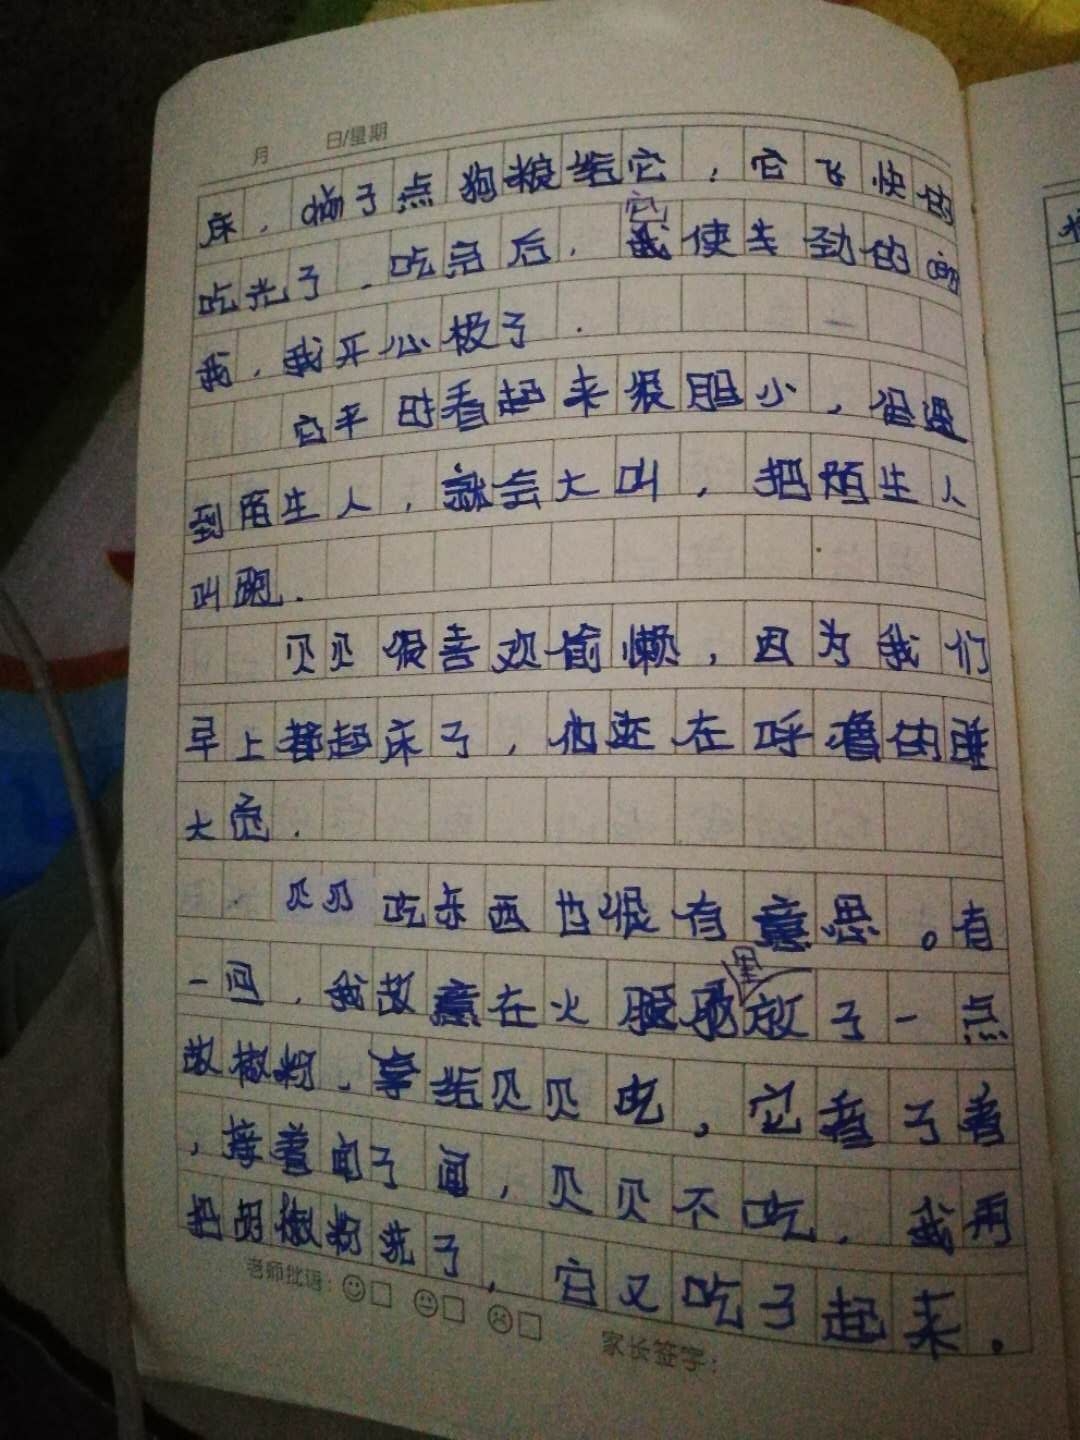 月 日/星期
床，了点狗粮给它，它飞快的
吃光了．吃完后．它使劲的
我．我开心极了．
它平时看起来很胆小，但遇
到陌生人，就会大叫，把陌生人
叫跑．
贝贝很喜欢偷懒，因为我们
早上都起床了，他还在呼噜的睡
大觉．
贝贝吃东西也很有意思。有
一回，我故意在火腿里放了一点
胡椒粉，拿给贝贝吃，它看了看
，接着闻了闻，贝贝不吃．我再
把胡椒粉洗了，它又吃了起来。
老师批语：
家长签字：